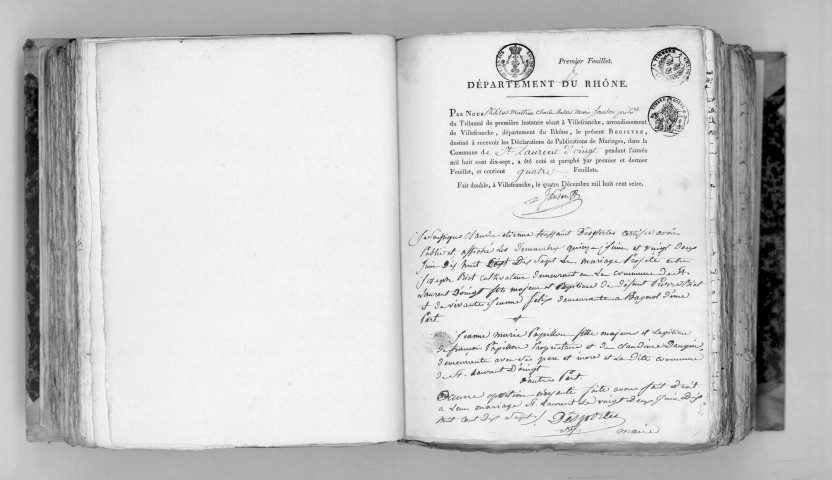 Premier Feuillet.
DÉPARTEMENT DU RHÔNE.
PAR NOUS
du Tribunal de première instance séant à Villefranche, arrondissement
de Villefranche, département du Rhône, le présent REGISTRE,
destiné à recevoir les Déclarations de Publications de Mariages, dans la
Commune de St. Laurent d'oingt pendant l'année
mil huit cent dix-sept, a été coté et paraphé par premier et dernier
Feuillet, et contient quatre Feuillets.
Fait double, à Villefranche, le quatre Décembre mil huit cent seize.
Je Soussigné Claude etienne toussaint Desportes certifie avoir
Publié et affiché Les démanches quinze Juin et vingt deux
Juin Dix huit Cept Dis Sept Le mariage Projeté entre
Joseph Biot cultivateur demeurant en La commune de St.
Laurent D'oingt fils majeur et légitime de defunt Pierre Biot
et de vivante Jeanne felix demeurante a Bagnol d'une
Part.
et
Jeanne marie Papillon fille majeure et Legitime
de francois Papillon Propriétaire et de claudine Dauguin,
demeurante avec ses pere et mere et La dite commune
de St. Laurent D'oingt
D'autre Part.
Aucune oposition n'ayante faite avons fait Droit
a Leur mariage St. Laurent Le vingt Deux Juin Dix
huit Cent Dix Sept
Desportes
maire